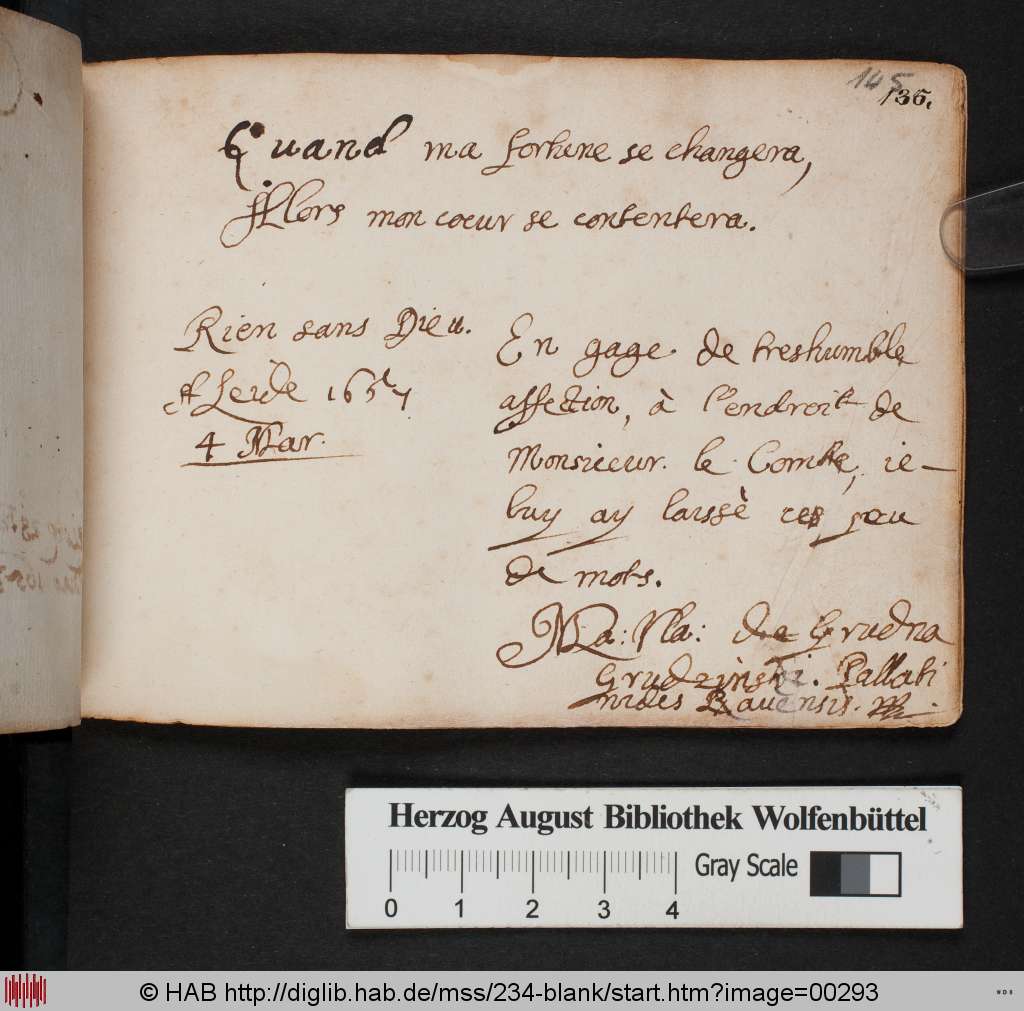 145
136.
Quand ma fortune se changera,
Allors mon coeur se contentera.
Rien sans Dieu.
A Leide 1657
4 Mar.
En gage de treshumble
affection, à l'endroit de
Monsieur le Comte, ie
luy ay laissè ces peu
de mots.
Ma: Vla: de Grudna
Grudzinski. Pallati
nides Rauensis.
Herzog August Bibliothek Wolfenbüttel
Gray Scale
0 1 2 3 4
© HAB http://diglib.hab.de/mss/234-blank/start.htm?image=00293